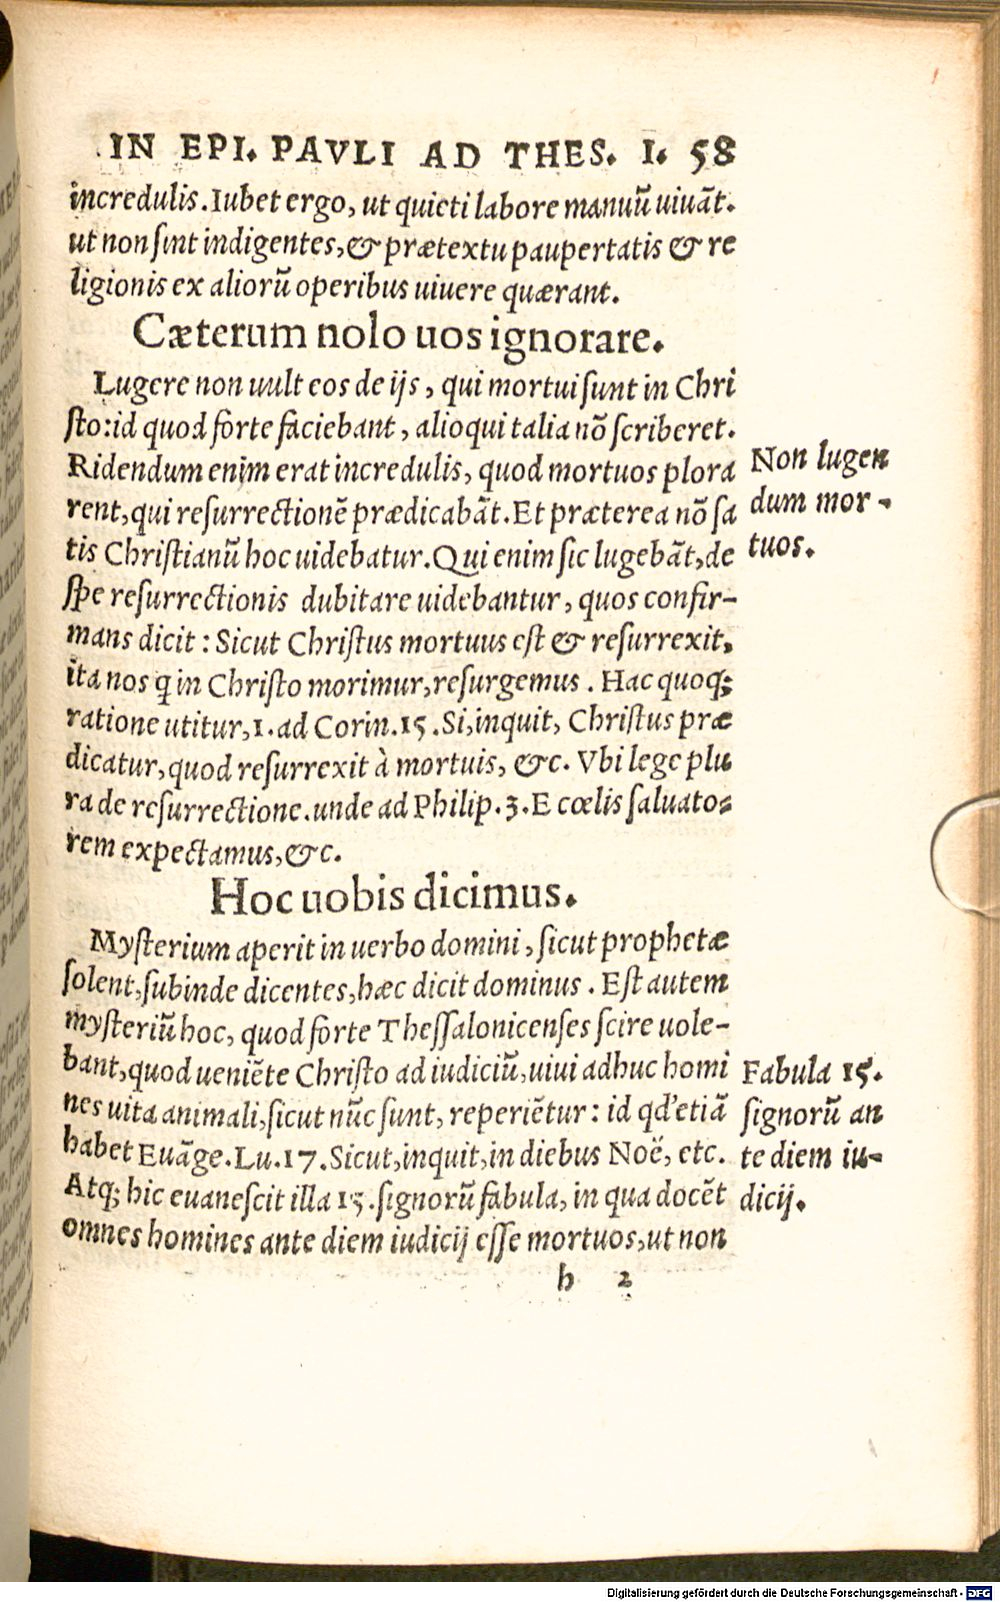 IN EPI. PAVLI AD THES. I. 58
incredulis. Iubet ergo, ut quieti labore manuũ uiuãt.
ut non sint indigentes, & prætextu paupertatis & re
ligionis ex aliorũ operibus uiuere quærant.
Cæterum nolo uos ignorare.
Lugere non uult eos de ijs, qui mortui sunt in Chri
sto: id quod forte faciebant, alioqui talia nõ scriberet.
Ridendum enim erat incredulis, quod mortuos plora
rent, qui resurrectionẽ prædicabãt. Et præterea nõ sa
tis Christianũ hoc uidebatur. Qui enim sic lugebãt, de
spe resurrectionis dubitare uidebantur, quos confir-
mans dicit: Sicut Christus mortuus est & resurrexit,
ita nos q̃ in Christo morimur, resurgemus. Hac quoq;
ratione utitur, 1. ad Corin. 15. Si, inquit, Christus præ
dicatur, quod resurrexit à mortuis, &c. Vbi lege plu
ra de resurrectione. unde ad Philip. 3. E cœlis saluato-
rem expectamus, &c.
Non lugen
dum mor-
tuos.
Hoc uobis dicimus.
Mysterium aperit in uerbo domini, sicut prophetæ
solent, subinde dicentes, hæc dicit dominus. Est autem
mysteriũ hoc, quod forte Thessalonicenses scire uole-
bant, quod ueniẽte Christo ad iudiciũ, uiui adhuc homi
nes uita animali, sicut nũc sunt, reperiẽtur: id qd' etiã
habet Euãge. Lu. 17. Sicut, inquit, in diebus Noë, etc.
Atq; hic euanescit illa 15. signorũ fabula, in qua docẽt
omnes homines ante diem iudicij esse mortuos, ut non
Fabula 15.
signorũ an
te diem iu-
dicij.
h 2
Digitalisierung gefördert durch die Deutsche Forschungsgemeinschaft - DFG